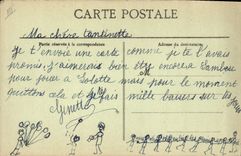 CARTE POSTALE
Ma chère tantinette
Partie réservée à la correspondance
Adresse du destinataire
je t'envoie une carte comme je te l'avais
promis, j'aimerais bien être encore à
pour jouer à Lolotte mais pour le moment
quittons cela et je fais mille baisers sur les
Ginette